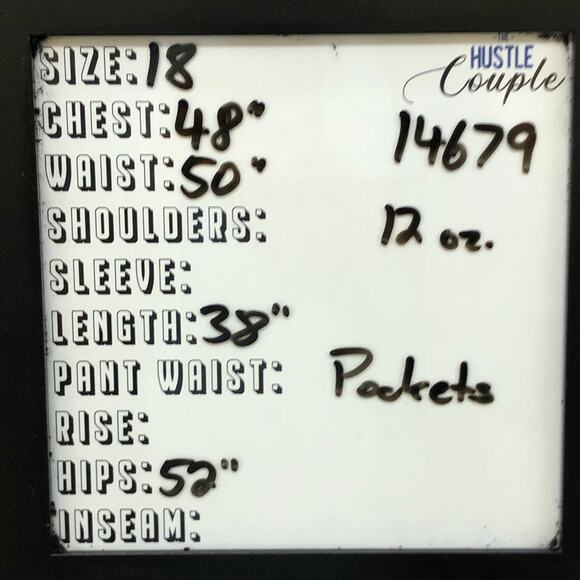 THE
HUSTLE
Couple
SIZE: 18
CHEST: 48"
14679
WAIST: 50"
SHOULDERS:
12 oz.
SLEEVE:
LENGTH: 38"
PANT WAIST:
Pockets
RISE:
HIPS: 52"
INSEAM: